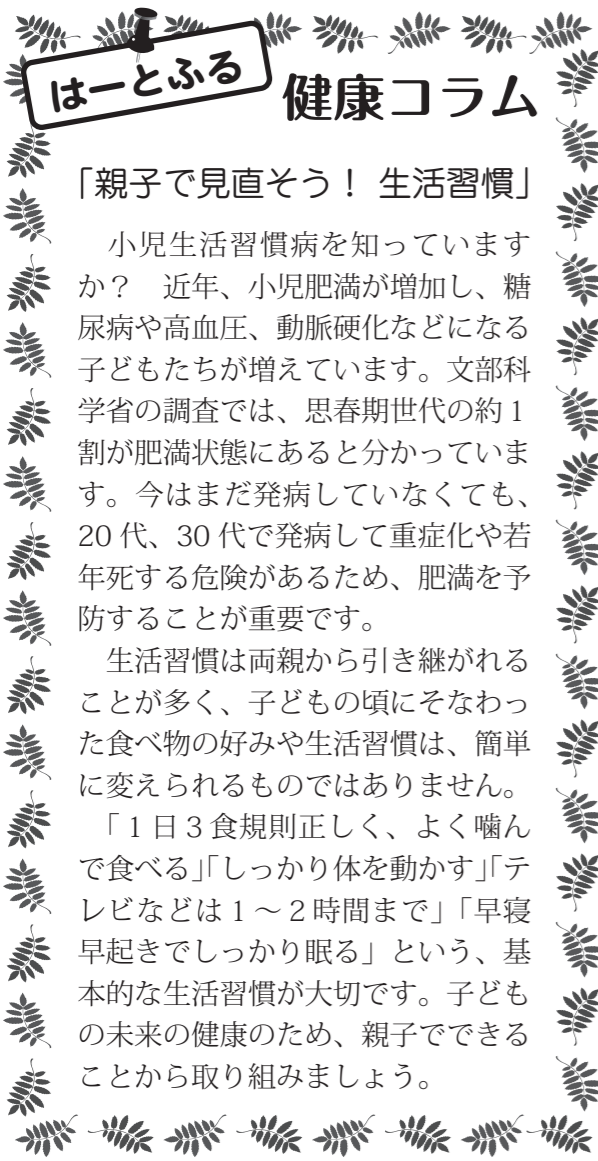 はーとふる
健康コラム
「親子で見直そう! 生活習慣」
　小児生活習慣病を知っています
か?　近年、小児肥満が増加し、糖
尿病や高血圧、動脈硬化などになる
子どもたちが増えています。文部科
学省の調査では、思春期世代の約1
割が肥満状態にあると分かっていま
す。今はまだ発病していなくても、
20代、30代で発病して重症化や若
年死する危険があるため、肥満を予
防することが重要です。
　生活習慣は両親から引き継がれる
ことが多く、子どもの頃にそなわっ
た食べ物の好みや生活習慣は、簡単
に変えられるものではありません。
　「1日3食規則正しく、よく噛ん
で食べる」「しっかり体を動かす」「テ
レビなどは1～2時間まで」「早寝
早起きでしっかり眠る」という、基
本的な生活習慣が大切です。子ども
の未来の健康のため、親子でできる
ことから取り組みましょう。